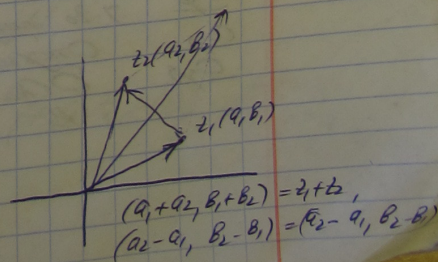 z₂(a₂, b₂)
z₁(a₁, b₁)
(a₁+a₂, b₁+b₂) = z₁+z₂,
(a₂−a₁, b₂−b₁) = (a₂−a₁, b₂−b₁)